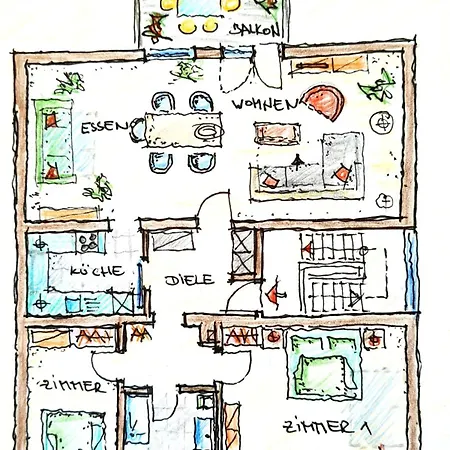 BALKON
WOHNEN
ESSEN
KÜCHE
DIELE
ZIMMER
ZIMMER 1